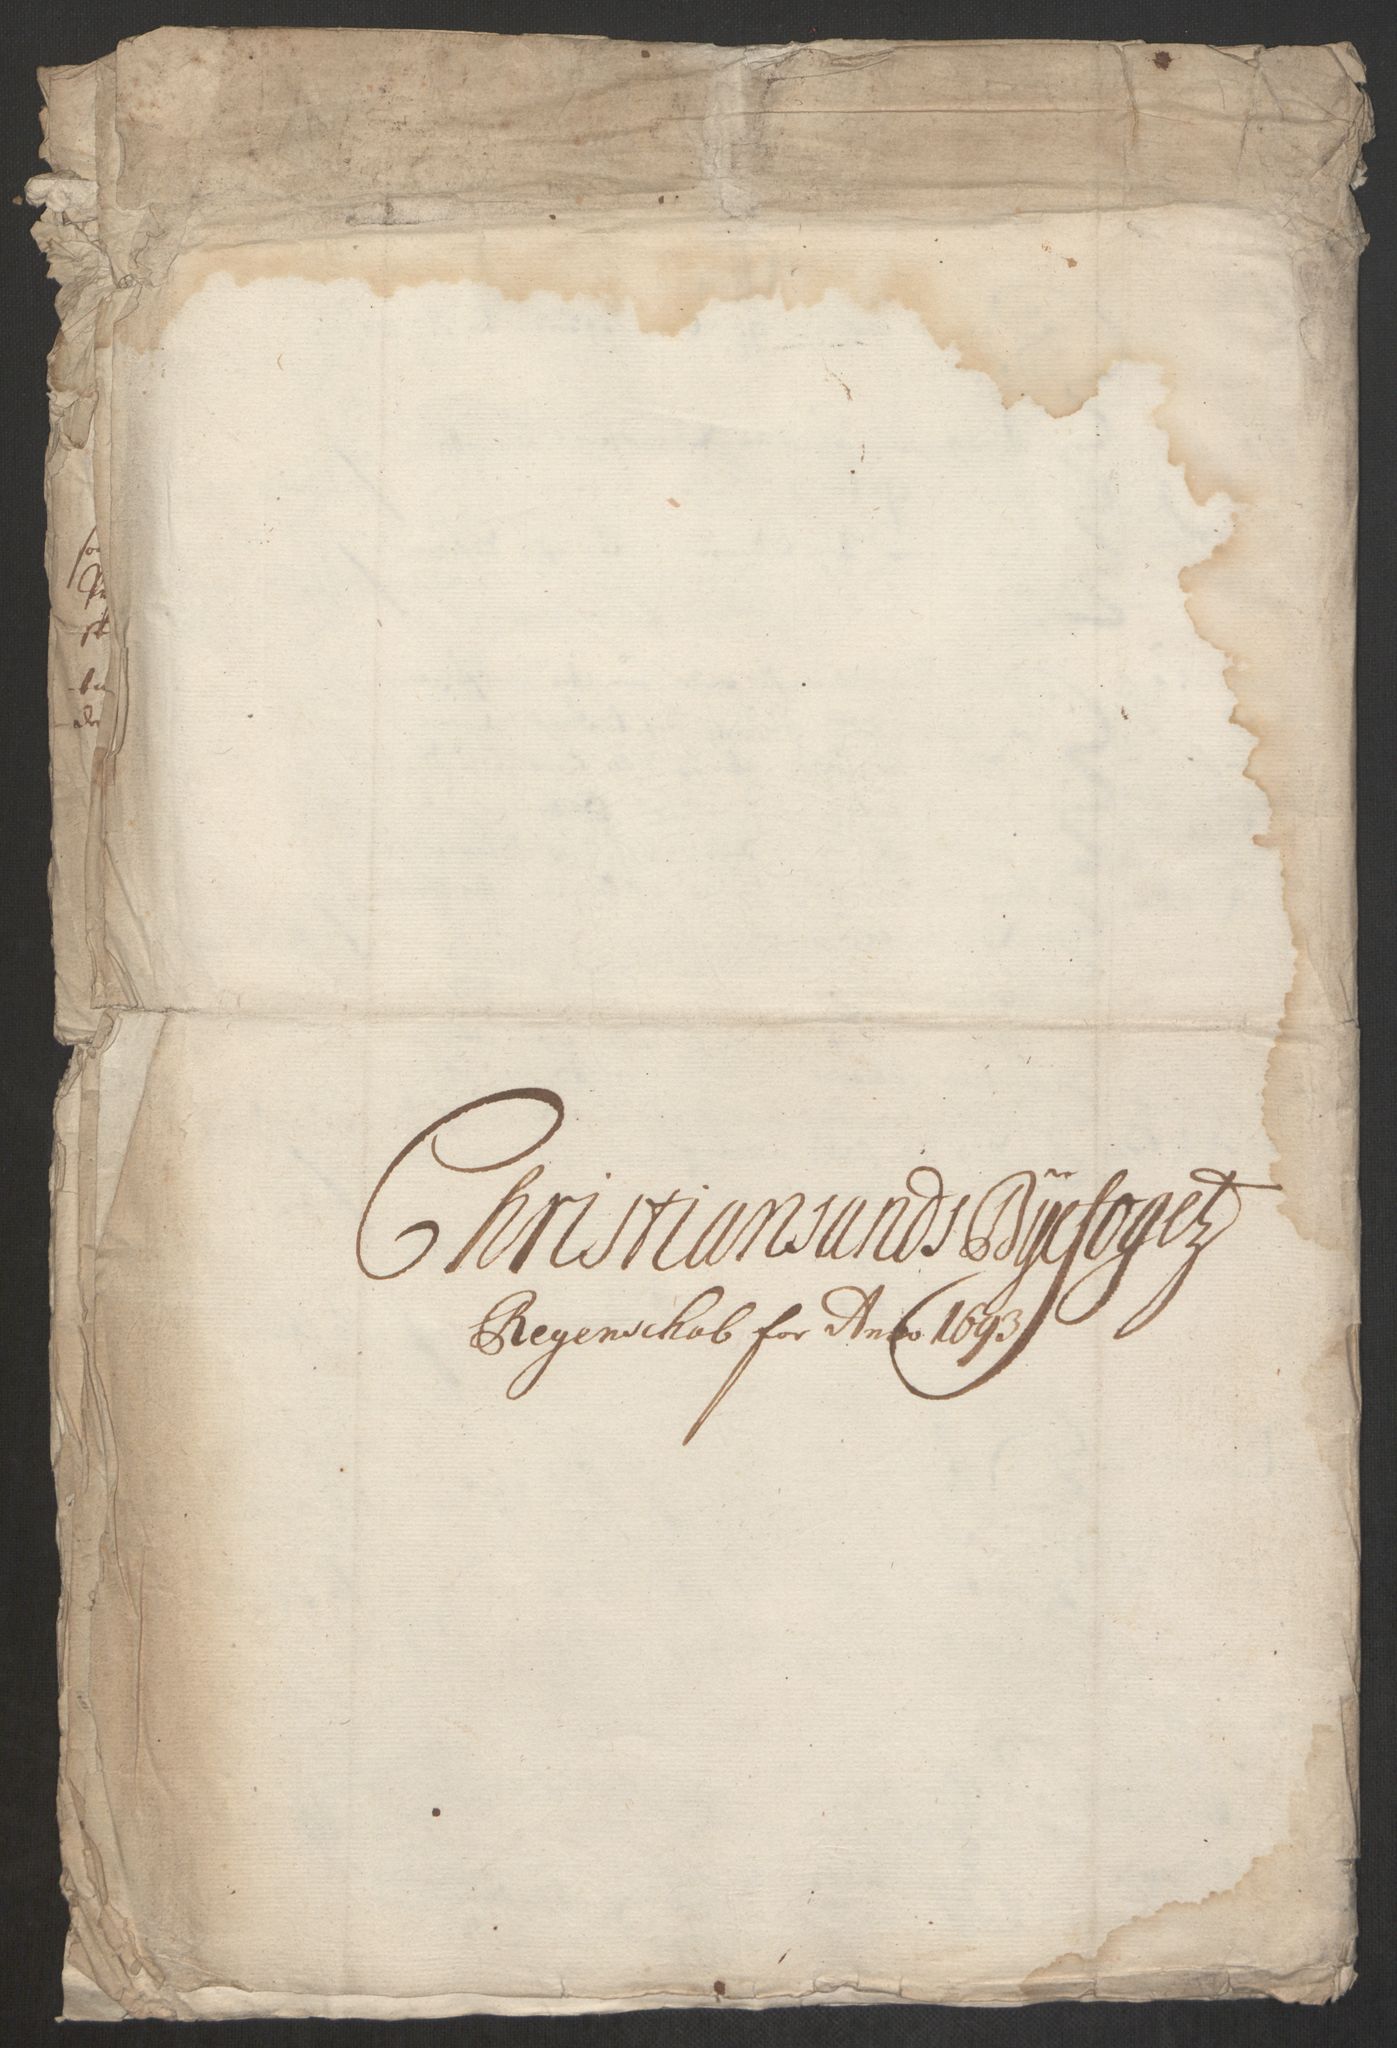 Christiansunds Byefogetz
Regenschab for Anno 1693